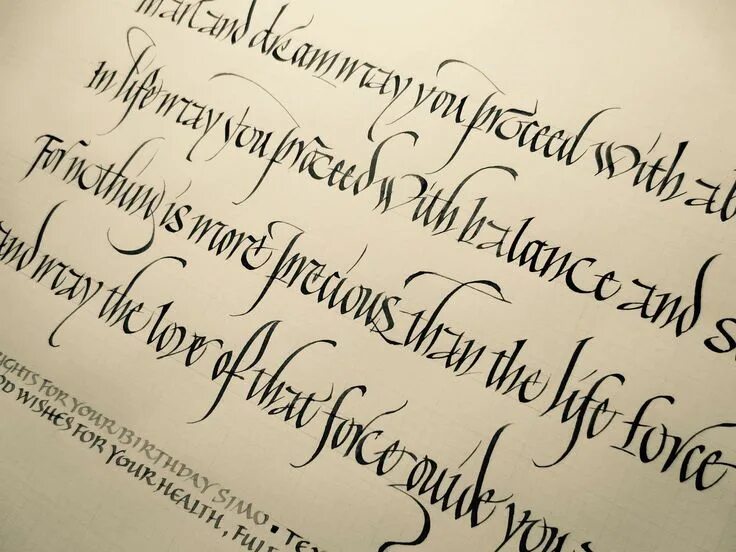 art and dream may you proceed with ab
In life may you proceed with balance and s
For nothing is more precious than the life force
and may the love of that force guide you
GHTS FOR YOUR BIRTHDAY SIMO • TEX
OD WISHES FOR YOUR HEALTH, FULF